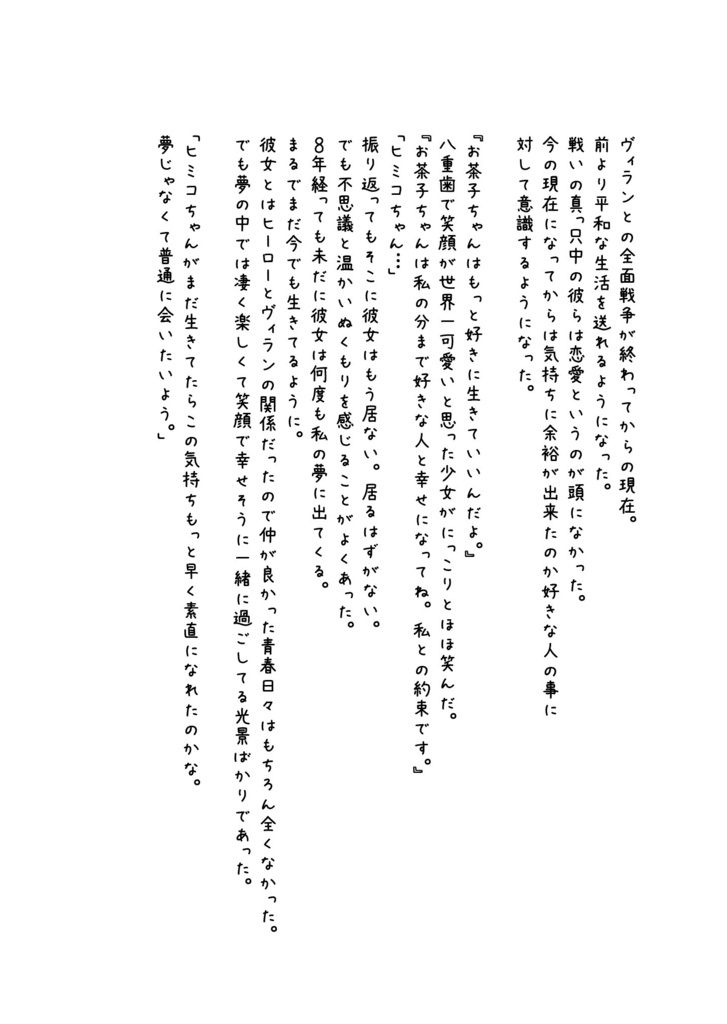 ヴィランとの全面戦争が終わってからの現在。
前より平和な生活を送れるようになった。
戦いの真っ只中の彼らは恋愛というのが頭になかった。
今の現在になってからは気持ちに余裕が出来たのか好きな人の事に
対して意識するようになった。
『お茶子ちゃんはもっと好きに生きていいんだよ。』
八重歯で笑顔が世界一可愛いと思った少女がにっこりとほほ笑んだ。
『お茶子ちゃんは私の分まで好きな人と幸せになってね。私との約束です。』
「ヒミコちゃん…」
振り返ってもそこに彼女はもう居ない。居るはずがない。
でも不思議と温かいぬくもりを感じることがよくあった。
8年経っても未だに彼女は何度も私の夢に出てくる。
まるでまだ今でも生きてるように。
彼女とはヒーローとヴィランの関係だったので仲が良かった青春日々はもちろん全くなかった。
でも夢の中では凄く楽しくて笑顔で幸せそうに一緒に過ごしてる光景ばかりであった。
「ヒミコちゃんがまだ生きてたらこの気持ちもっと早く素直になれたのかな。
夢じゃなくて普通に会いたいよう。」